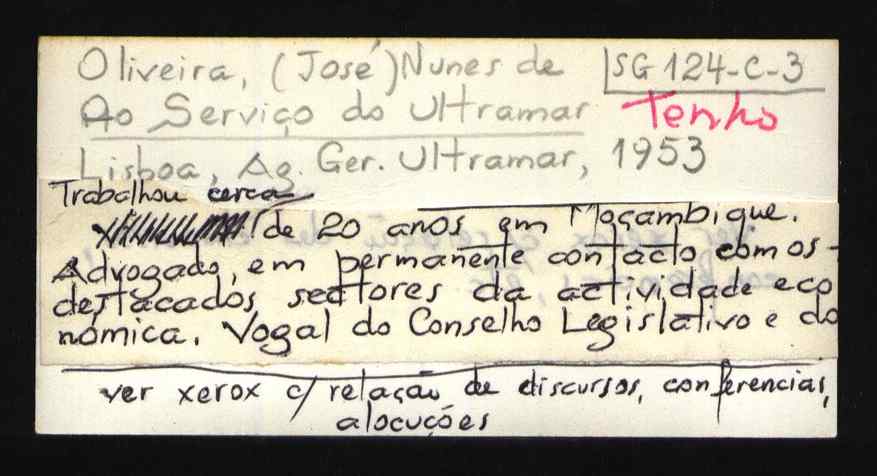 Oliveira, (José) Nunes de SG 124-C-3
Ao Serviço do Ultramar Tenho
Lisboa, Ag. Ger. Ultramar, 1953
Trabalhou cerca
de 20 anos em Moçambique.
Advogado, em permanente contacto com os
destacados sectores da actividade eco
nómica. Vogal do Conselho Legislativo e do
ver xerox c/ relação de discursos, conferencias,
alocuções